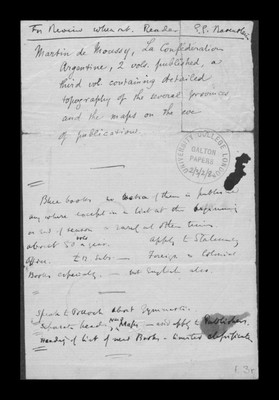 For Review when out. Reader
Martin de Moussy, La Confederation
Argentine, 2 vols. published, a
third vol. containing detailed
topography of the several provinces
and the maps on the eve
of publication.
UNIVERSITY COLLEGE LONDON
GALTON
PAPERS
Blue books no notice of them is published
any where except in a list at the beginning
or end of season — rarely at other times.
about 80 vols a year. Apply to Stationery
Office. Foreign & Colonial
Books especially — but English also
Speak to about
Separate heading Maps — and apply to Publishers.
Heading of List of next Books —